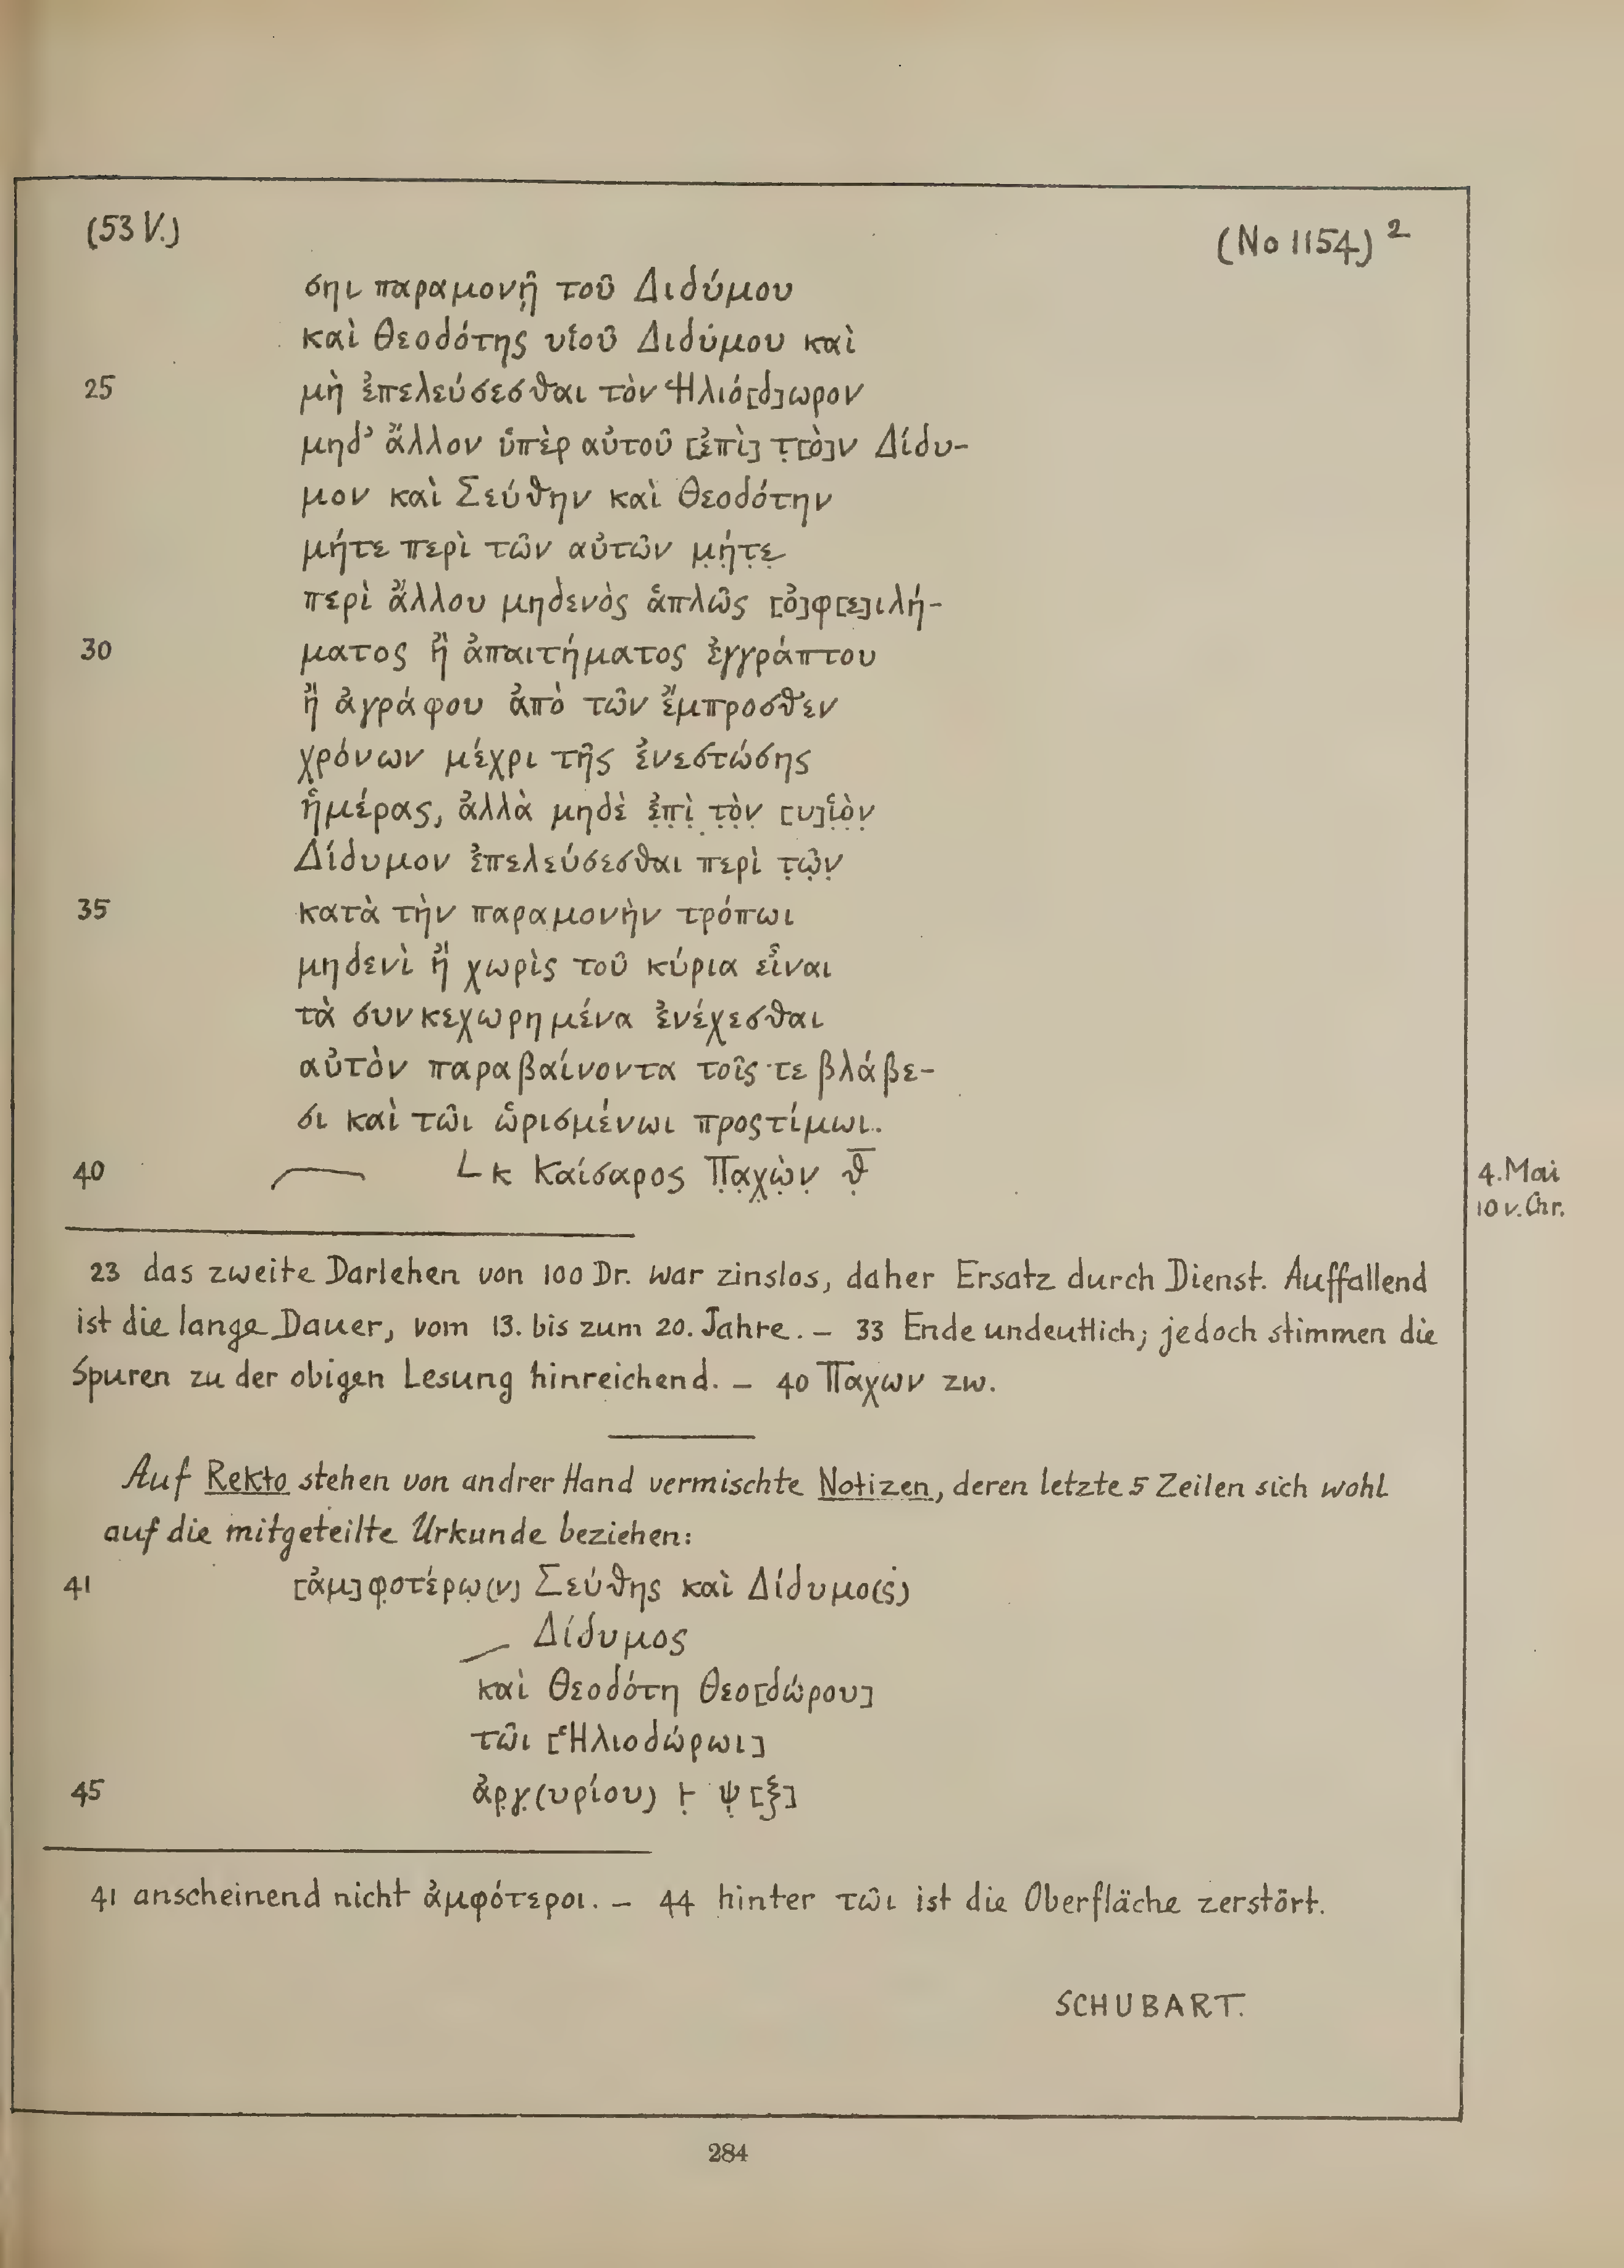 (53 V.)
(No 1154) 2
σηι παραμονῇ τοῦ Διδύμου
καὶ Θεοδότης υἱοῦ Διδύμου καὶ
25 μὴ ἐπελεύσεσθαι τὸν Ἡλιό[δ]ωρον
μηδ᾽ ἄλλον ὑπὲρ αὐτοῦ [ἐπὶ] τ̣[ὸ]ν Δίδυ-
μον καὶ Σεύθην καὶ Θεοδότην
μήτε περὶ τῶν αὐτῶν μ̣ή̣τ̣ε̣
περὶ ἄλλου μηδενὸς ἁπλῶς [ὀ]φ[ε]ιλή-
30 ματος ἢ ἀπαιτήματος ἐγγράπτου
ἢ ἀγράφου ἀπὸ τῶν ἔμπροσθεν
χρόνων μέχρι τῆς ἐνεστώσης
ἡμέρας, ἀλλὰ μηδὲ ἐ̣π̣ὶ̣ τ̣ὸ̣ν̣ [υ]ἱ̣ὸ̣ν̣
Δίδυμον ἐπελεύσεσθαι περὶ τ̣ῶ̣ν̣
35 κατὰ τὴν παραμονὴν τρόπωι
μηδενὶ ἢ χωρὶς τοῦ κύρια εἶναι
τὰ συνκεχωρημένα ἐνέχεσθαι
αὐτὸν παραβαίνοντα τοῖς τε βλάβε-
σι καὶ τῶι ὡρισμένωι προςτίμωι.
40 └ κ Καίσαρος Π̣α̣χ̣ὼ̣ν̣ θ̣̅
4. Mai
10 v. Chr.
23 das zweite Darlehen von 100 Dr. war zinslos, daher Ersatz durch Dienst. Auffallend
ist die lange Dauer, vom 13. bis zum 20. Jahre. – 33 Ende undeutlich; jedoch stimmen die
Spuren zu der obigen Lesung hinreichend. – 40 Παχων zw.
Auf Rekto stehen von andrer Hand vermischte Notizen, deren letzte 5 Zeilen sich wohl
auf die mitgeteilte Urkunde beziehen:
41 [ἀμ]φ̣οτέρω̣(ν) Σεύθης καὶ Δίδυμο(ς)
Δίδυμος
καὶ Θεοδότη Θεο[δώρου]
τῶι [Ἡλιοδώρωι]
45 ἀρ̣γ̣(υρίου) ⊢̣ ψ̣ [ξ]
41 anscheinend nicht ἀμφότεροι. – 44 hinter τῶι ist die Oberfläche zerstört.
SCHUBART.
284